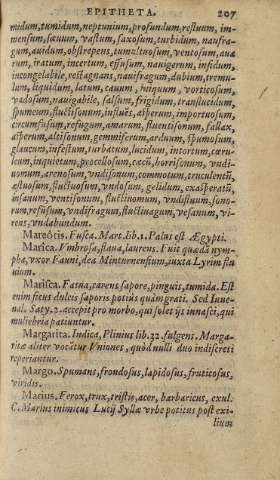 EPITHETA. 207
midum, tumidum, neptunium, profundum, restuum, im-
mensum, sæuum, vastum, saxosum, turbidum, naufra-
gum, auidum, obstrepens, tumultuosum, ventosum, aua
rum, iratum, incertum, effusum, nauigerum, infidum,
incongelabile, restagnans, nauifragum, dubium, tremu-
lum, liquidum, latum, cauum, iniquum, vorticosum,
vadosum, nauigabile, falsum, frigidum, translucidum,
spumeum, fluctisonum, influēs, asperum, importuosum,
circumfusum, refugum, amarum, fluentisonum, fallax,
asperum, altisonum, gemmiferum, arduum, spumosum,
glaucum, infestum, turbatum, lucidum, intortum, cæru-
leum, inquietum, procellosum, cæcū, horrisonum, vndi-
uomum, arenosum, vndisonum, commotum, truculentū,
æstuosum, fluctiuosum, vndosum, gelidum, exasperatū,
insanum, ventisonum, fluctinomum, vndisium, sono-
rum, refusum, vndifragum, fluctiuagum, vesanum, vi-
rens, vndabundum.
Mareotis. Fusca. Mart. lib. 1. Palus est Ægypti.
Marica. Vmbrosa, flaua, laurens. Fuit quædā nym-
pha, vxor Fauni, dea Minturnensium, iuxta Lyrim flu
uium.
Marisca. Fatua, carens sapore, pinguis, tumida. Est
enim ficus dulcis saporis potiùs quàm grati. Sed Iuue-
nal. Saty. 2. accepit pro morbo, qui solet ijs innasci, qui
muliebria patiuntur.
Margarita. Indica, Plinius lib. 32. fulgens. Marga-
ritæ aliter vocātur Vniones, quòd nulli duo indiscreti
reperiantur.
Margo. Spumans, frondosus, lapidosus, fruticosus,
viridis.
Marius. Ferox, trux, tristis, acer, barbaricus, exul.
C. Marius inimicus Lucij Syllæ vrbe potitus post exi-
lium